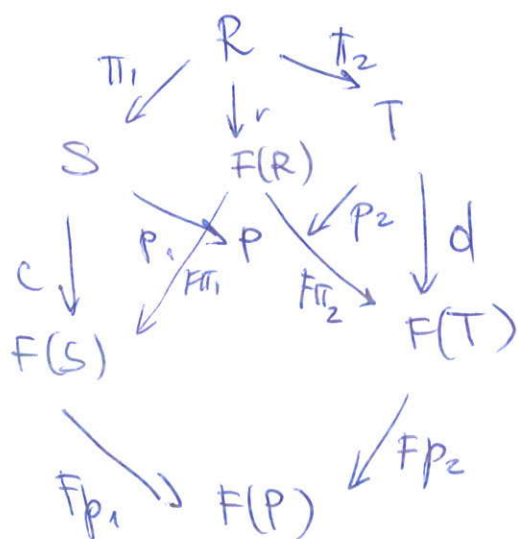 R
π₁ π₂
r T
S F(R)
p₁ P p₂
c Fπ₁ Fπ₂ d
F(S) F(T)
Fp₁ F(P) Fp₂